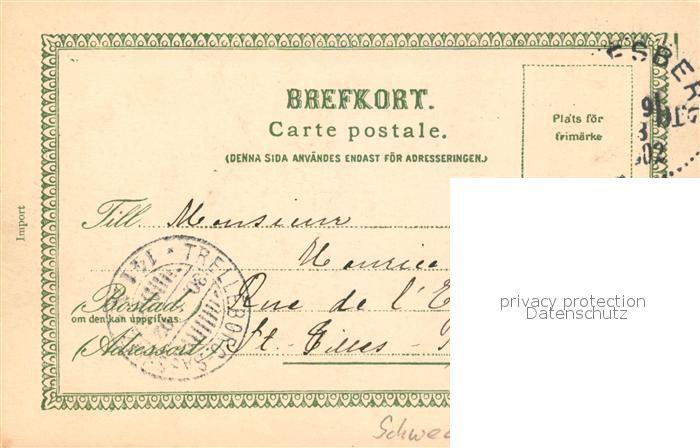 BREFKORT.
Carte postale.
(DENNA SIDA ANVÄNDES ENDAST FÖR ADRESSERINGEN.)
Plats för
frimärke
ESBERG
Import
Till Monsieur
Maurice
TRELLEBORG
Bostad Rue de l'E
om den kan uppgifvas.
Adressort St-Gilles-
privacy protection
Datenschutz
Schwed